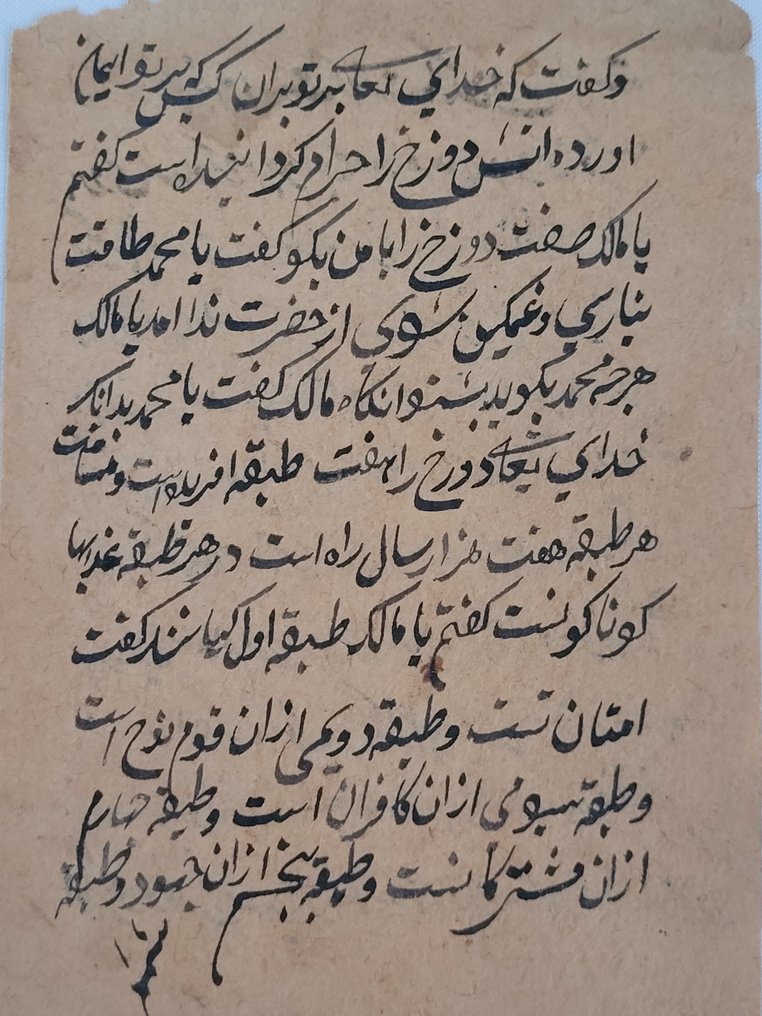 وکفت که خدای تعا بر تو بران کس که بر تو ایمان
اورده اتش دوزخ را حرام کردانیده است کفتم
یا مالک صفت دوزخ را با من بکو کفت یا محمد طاقت
نیاری و غمکین شوی از حضرت ندا امد یا مالک
هرچه محمد بکوید بشنو انکاه مالک کفت یا محمد بدانکه
خدای تعا دوزخ را هفت طبقه افریده است و مسافت
هر طبقه هفت هزار سال راه است در هر طبقه عذابها
کوناکونست کفتم یا مالک طبقه اول کیانند کفت
امتان تست و طبقه دویمی ازان قوم نوح است
و طبقه سیومی ازان کافران است و طبقه چهارم
ازان مشترکانست و طبقه پنجم ازان جهود و طبقه